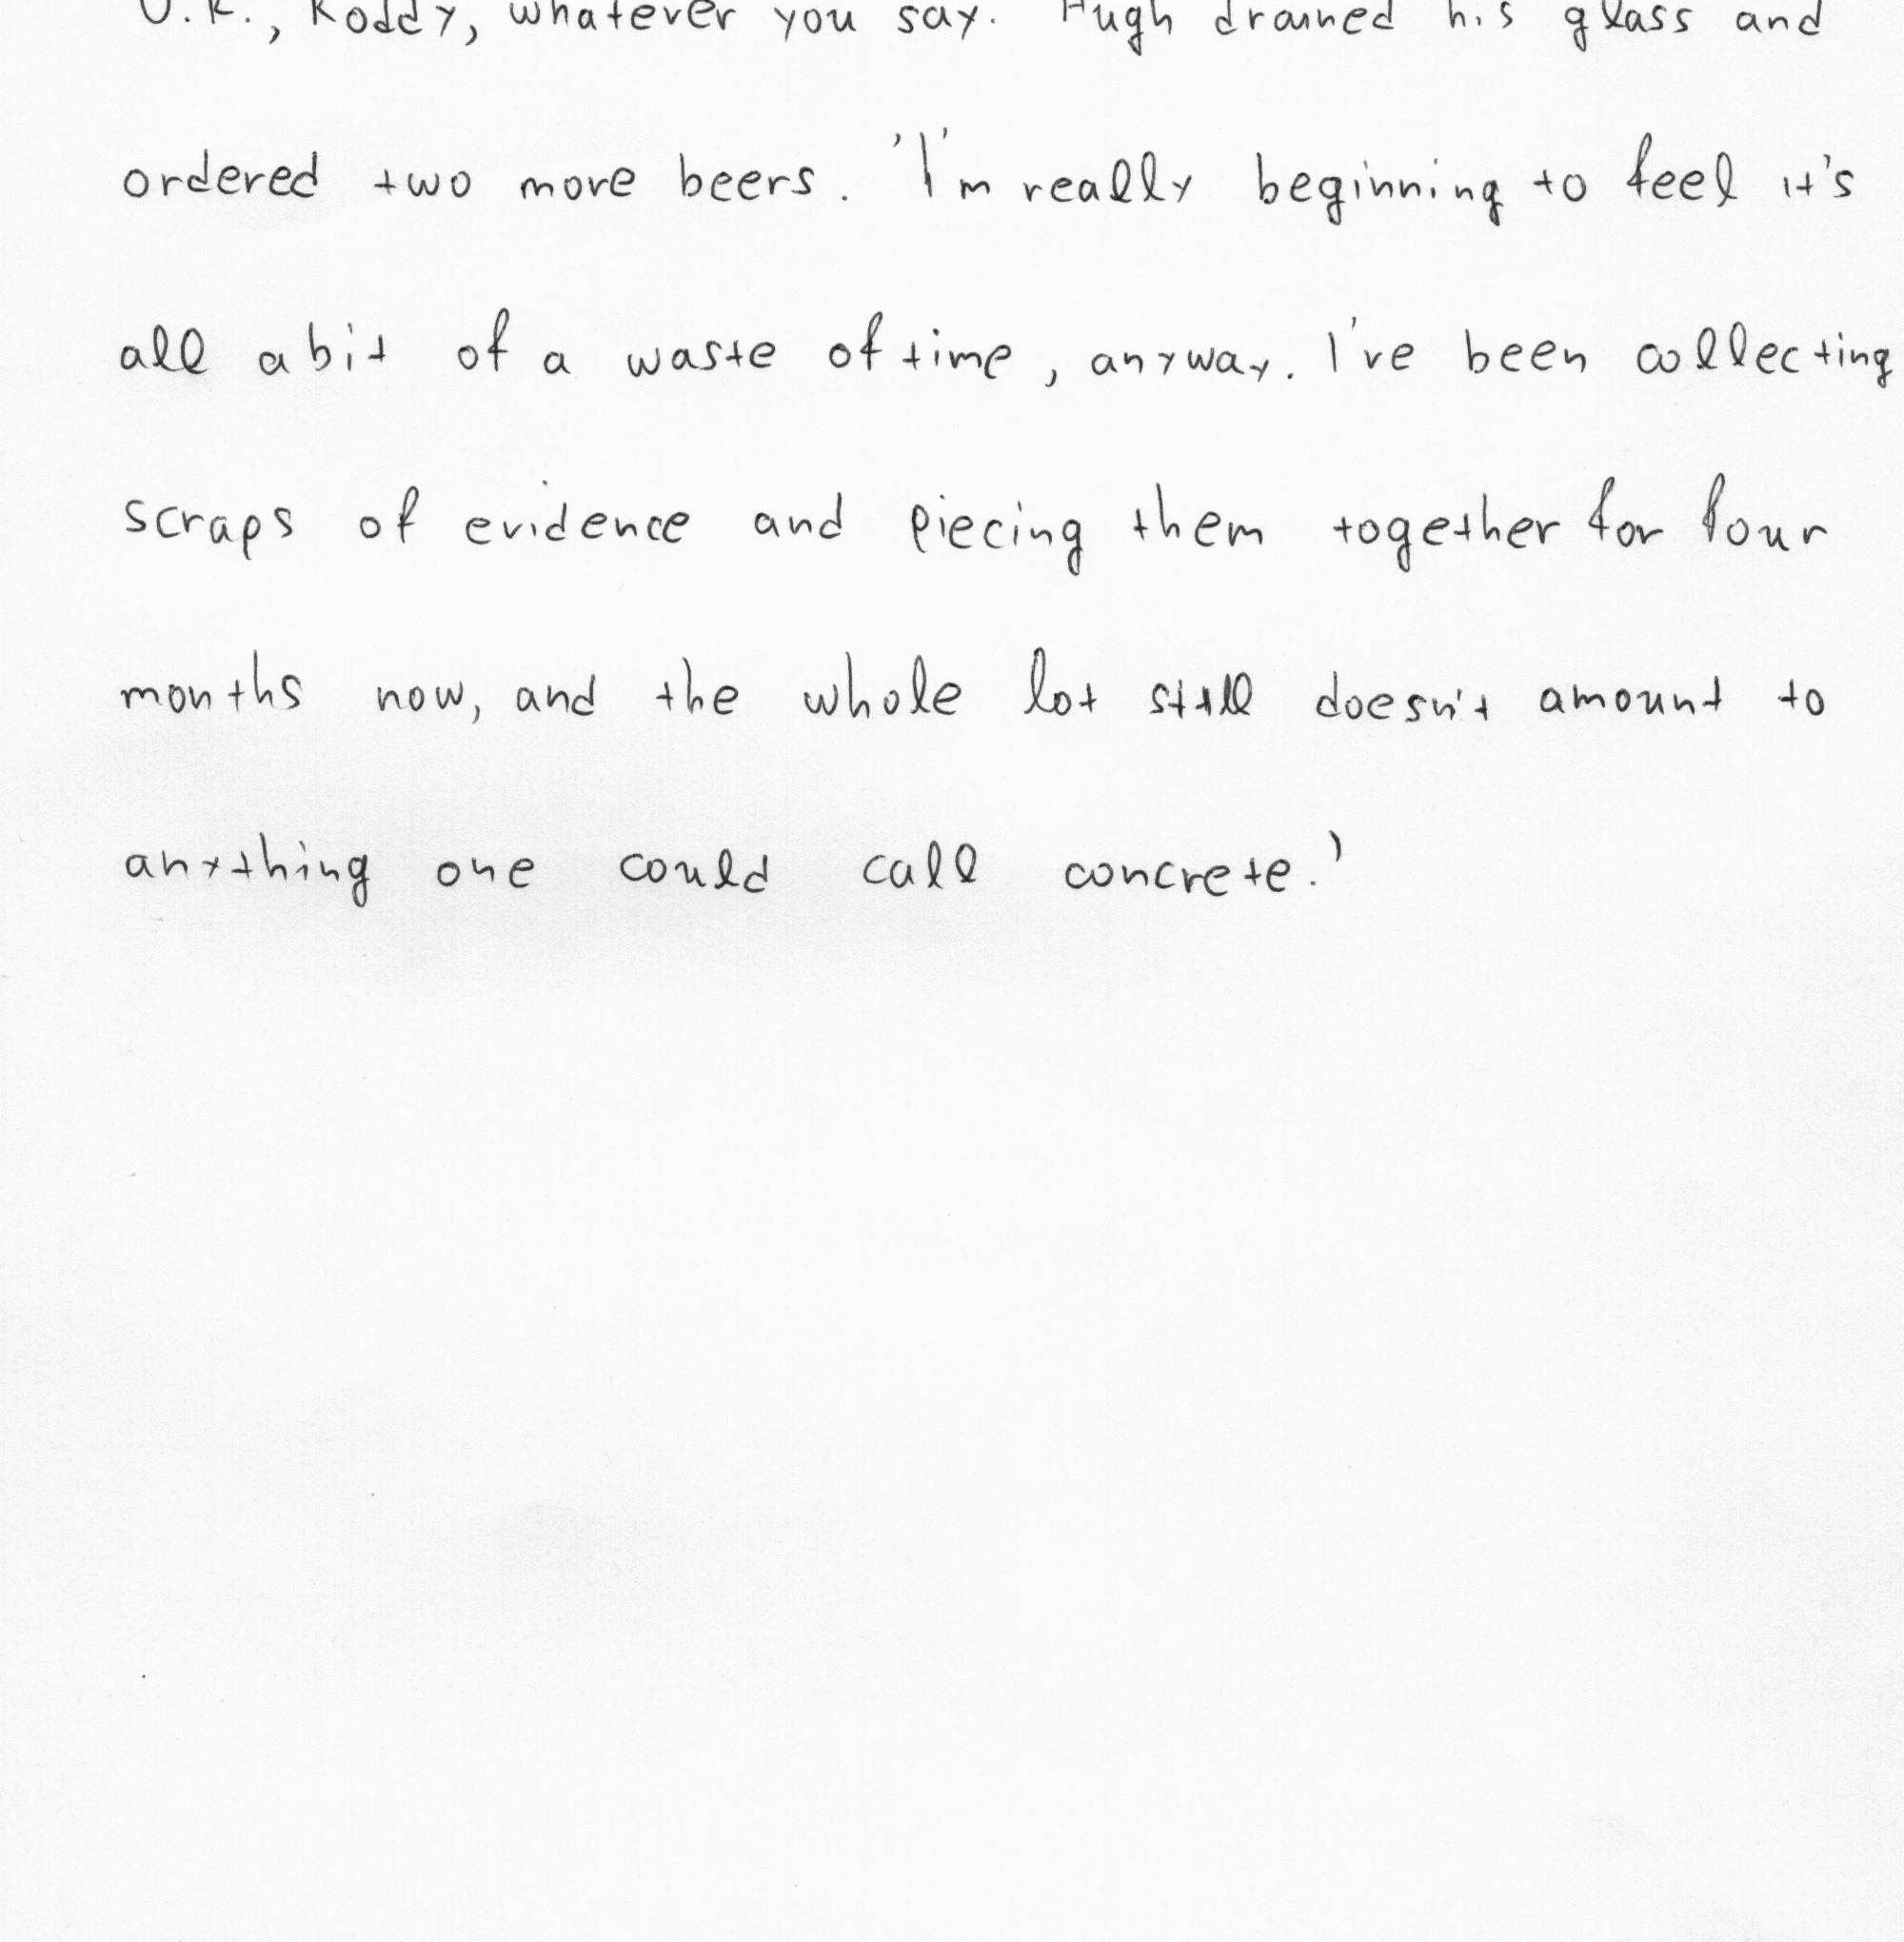 O.K., Roddy, whatever you say. Hugh drained his glass and
ordered two more beers. 'I'm really beginning to feel it's
all a bit of a waste of time, anyway. I've been collecting
scraps of evidence and piecing them together for four
months now, and the whole lot still doesn't amount to
anything one could call concrete.'